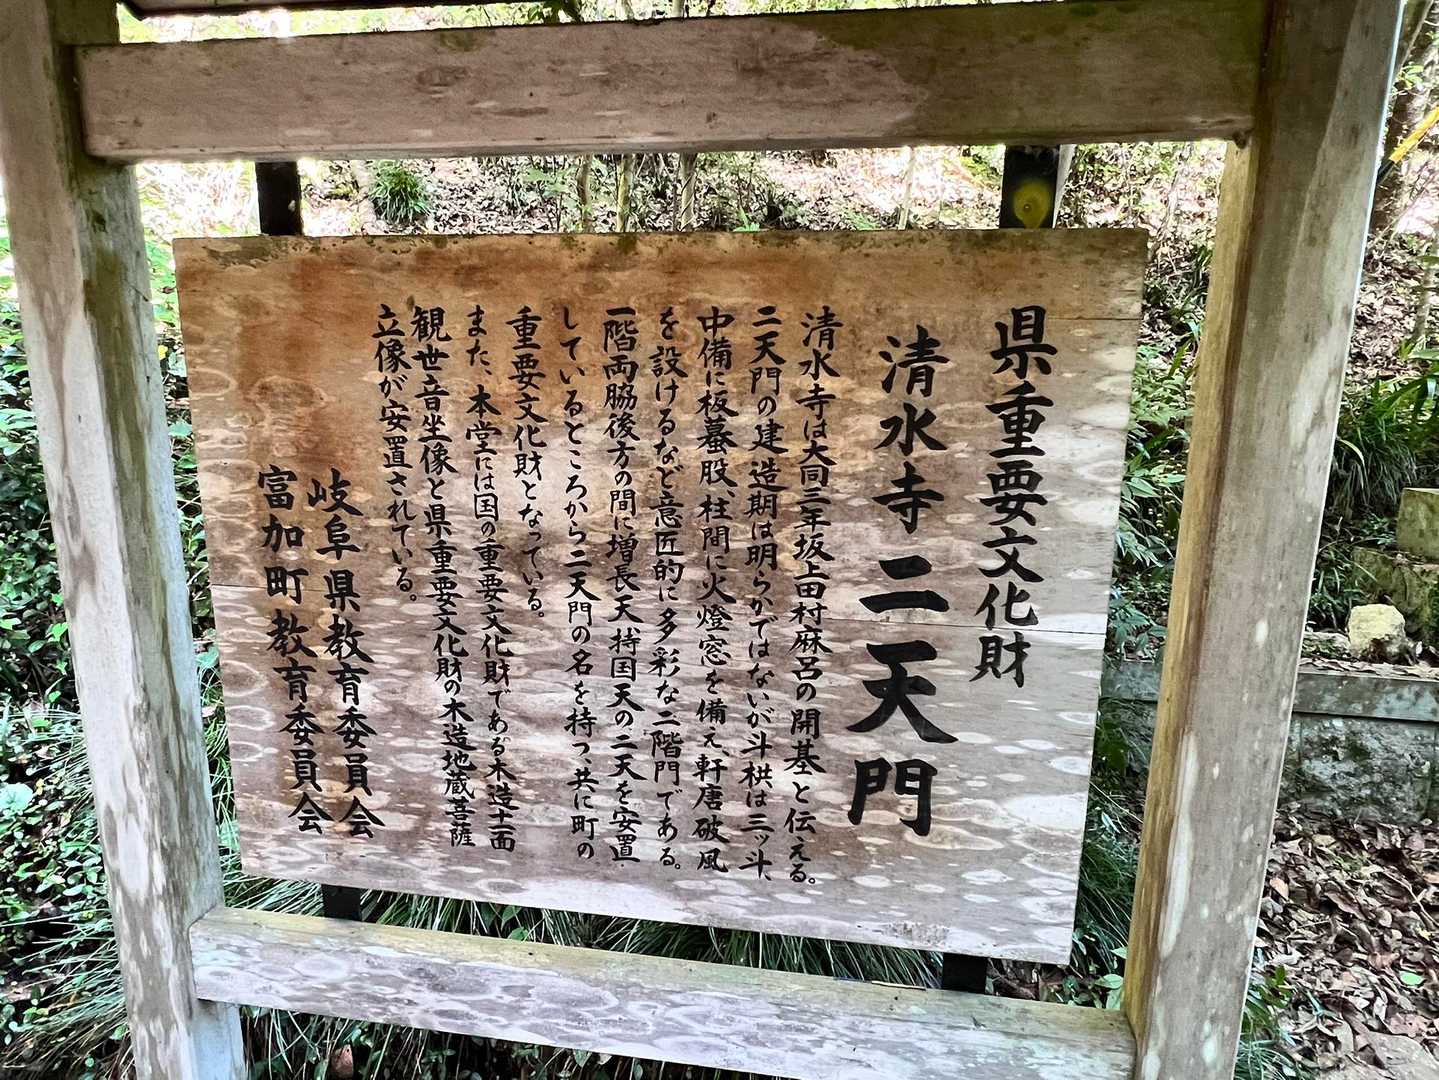 県重要文化財
清水寺二天門
清水寺は大同三年坂上田村麻呂の開基と伝える。
二天門の建造期は明らかではないが斗栱は三ッ斗、
中備に板蟇股、柱間に火燈窓を備え軒唐破風
を設けるなど意匠的に多彩な二階門である。
一階両脇後方の間に増長天、持国天の二天を安置
しているところから二天門の名を持つ、共に町の
重要文化財となっている。
また、本堂には国の重要文化財である木造十一面
観世音坐像と県重要文化財の木造地蔵菩薩
立像が安置されている。
岐阜県教育委員会
富加町教育委員会